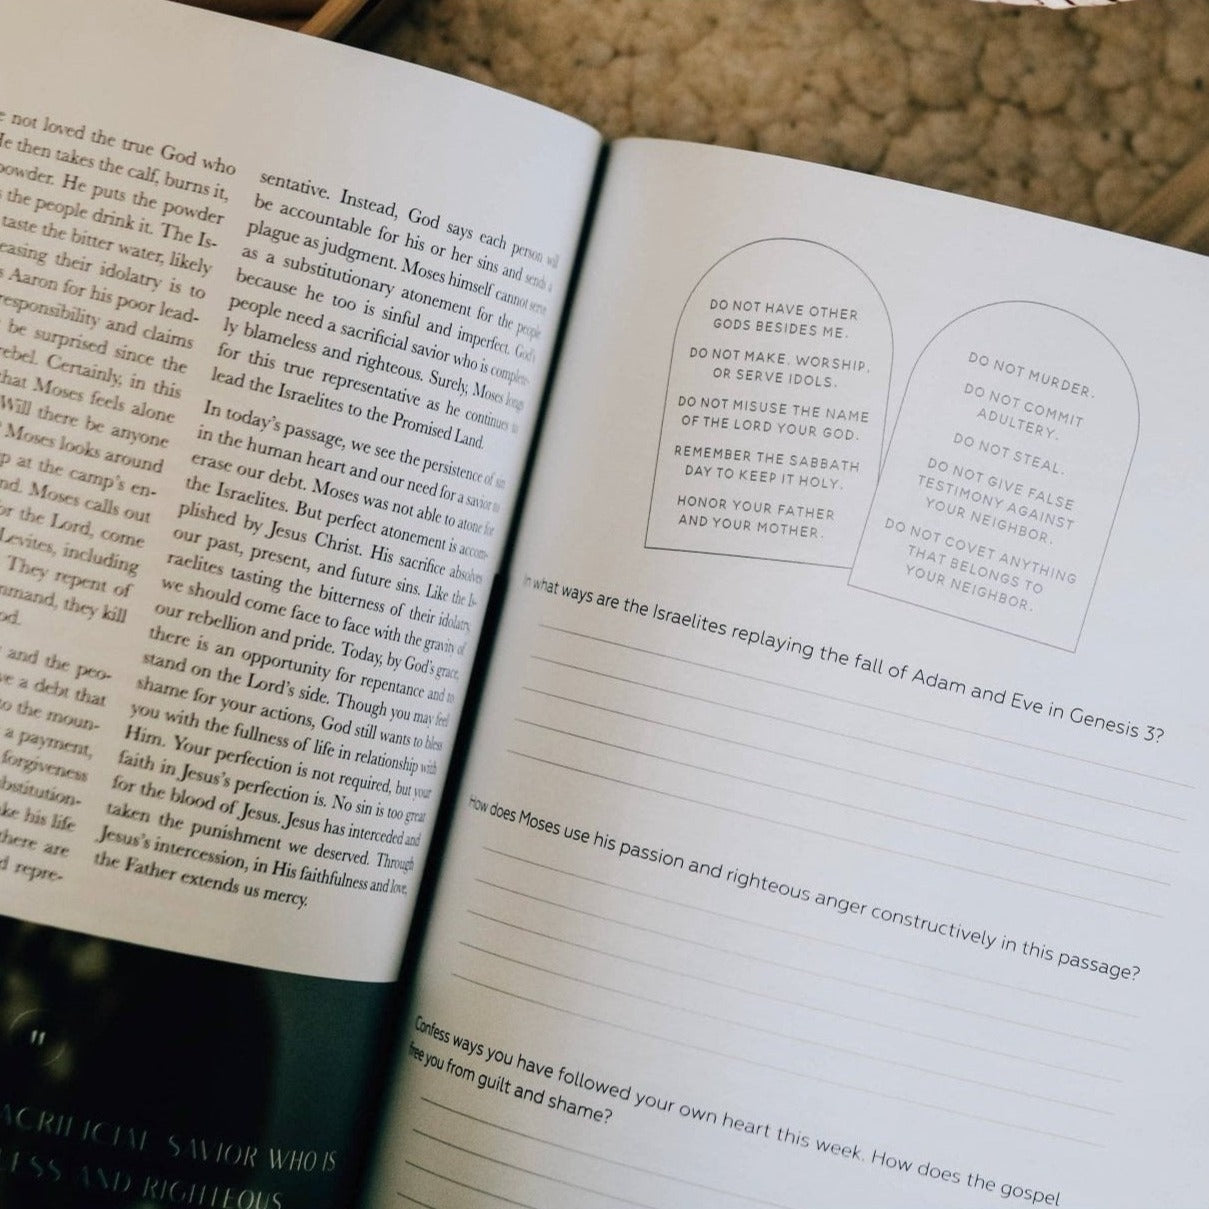 not loved the true God who
He then takes the calf, burns it,
powder. He puts the powder
the people drink it. The Is-
taste the bitter water, likely
easing their idolatry is to
Aaron for his poor lead-
responsibility and claims
be surprised since the
rebel. Certainly, in this
that Moses feels alone
Will there be anyone
Moses looks around
at the camp's en-
Moses calls out
or the Lord, come
Levites, including
They repent of
they kill
and the peo-
a debt that
to the moun-
a payment,
forgiveness
his life
there are
repre-
sentative. Instead, God says each person will
be accountable for his or her sins and sends a
plague as judgment. Moses himself cannot serve
as a substitutionary atonement for the people
because he too is sinful and imperfect. God's
people need a sacrificial savior who is complete-
ly blameless and righteous. Surely, Moses longs
for this true representative as he continues to
lead the Israelites to the Promised Land.
In today's passage, we see the persistence of sin
in the human heart and our need for a savior to
erase our debt. Moses was not able to atone for
the Israelites. But perfect atonement is accom-
plished by Jesus Christ. His sacrifice absolves
our past, present, and future sins. Like the Is-
raelites tasting the bitterness of their idolatry,
we should come face to face with the gravity of
our rebellion and pride. Today, by God's grace,
there is an opportunity for repentance and to
stand on the Lord's side. Though you may feel
shame for your actions, God still wants to bless
you with the fullness of life in relationship with
Him. Your perfection is not required, but your
faith in Jesus's perfection is. No sin is too great
for the blood of Jesus. Jesus has interceded and
taken the punishment we deserved. Through
Jesus's intercession, in His faithfulness and love,
the Father extends us mercy.
"
SAVIOR WHO IS
AND RIGHTEOUS
DO NOT HAVE OTHER
GODS BESIDES ME.
DO NOT MAKE, WORSHIP,
OR SERVE IDOLS.
DO NOT MISUSE THE NAME
OF THE LORD YOUR GOD.
REMEMBER THE SABBATH
DAY TO KEEP IT HOLY.
HONOR YOUR FATHER
AND YOUR MOTHER.
DO NOT MURDER.
DO NOT COMMIT
ADULTERY.
DO NOT STEAL.
DO NOT GIVE FALSE
TESTIMONY AGAINST
YOUR NEIGHBOR.
DO NOT COVET ANYTHING
THAT BELONGS TO
YOUR NEIGHBOR.
In what ways are the Israelites replaying the fall of Adam and Eve in Genesis 3?
How does Moses use his passion and righteous anger constructively in this passage?
Confess ways you have followed your own heart this week. How does the gospel
free you from guilt and shame?